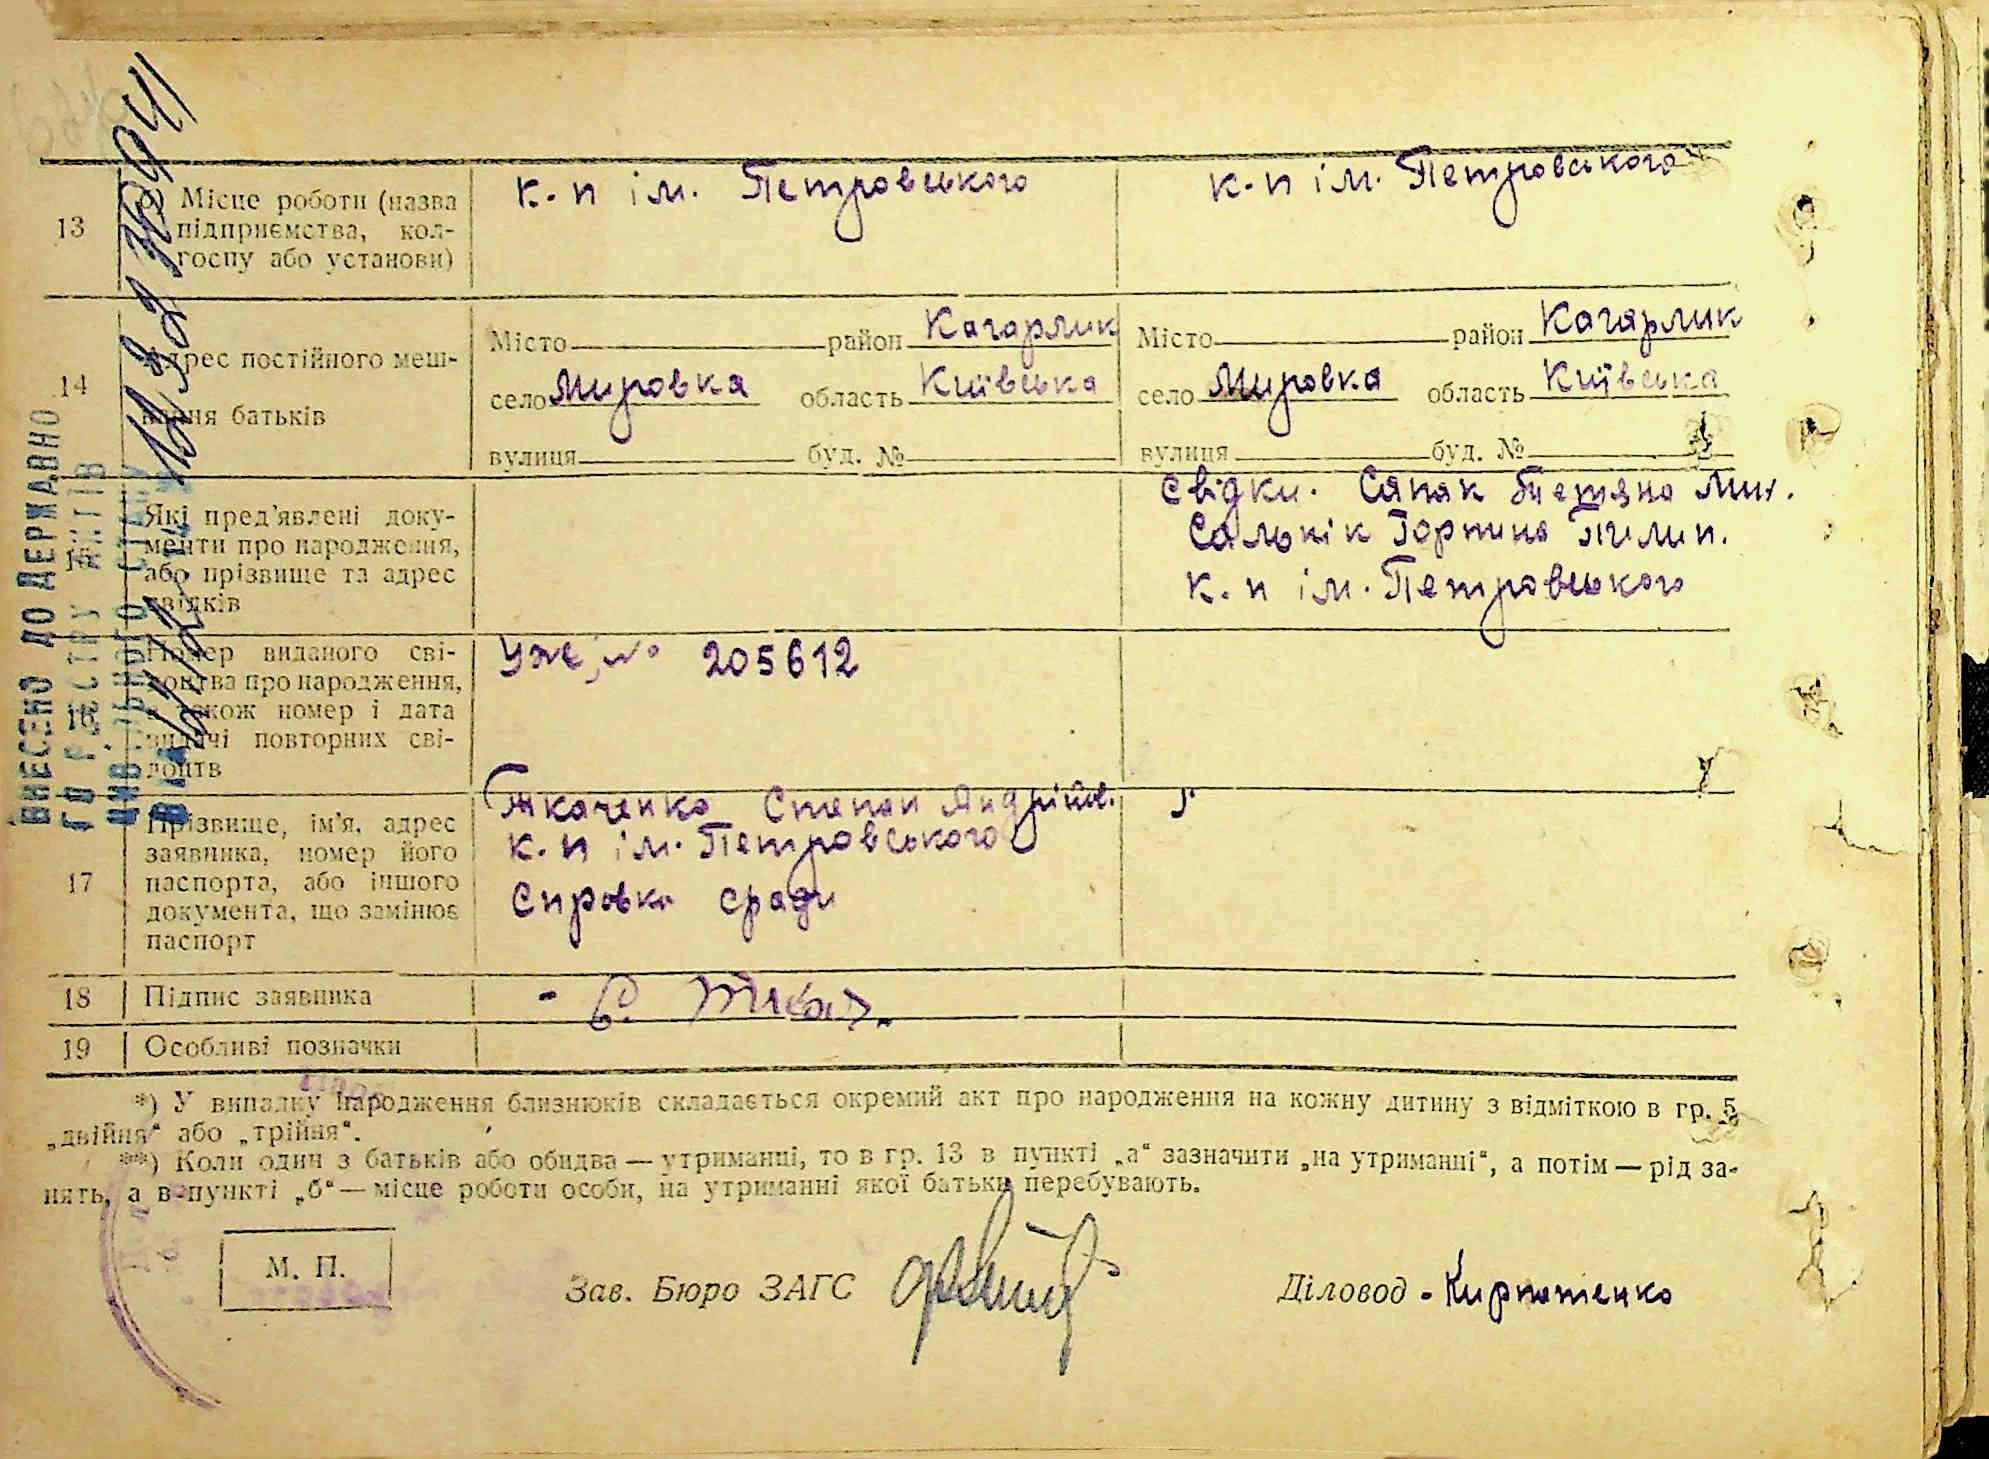 13
б) Місце роботи (назва підприємства, колгоспу або установи)
к-п ім. Петровського
к-п ім. Петровського
14
Адрес постійного мешкання батьків
Місто район Кагарлик
село Мировка область Київська
вулиця буд. №
Місто район Кагарлик
село Мировка область Київська
вулиця буд. №
15
Які пред'явлені документи про народження, або прізвище та адрес свідків
Свідки. Сапяк Тетяна Мик.
Сальнік Горпина Пилип.
к-п ім. Петровського
16
Номер виданого свідоцтва про народження, а також номер і дата видачі повторних свідоцтв
№ 205612
17
Прізвище, ім'я, адрес заявника, номер його паспорта, або іншого документа, що замінює паспорт
Ткаченко Степан Андрійов.
к-п ім. Петровського
Справка сради
18
Підпис заявника
19
Особливі позначки
*) У випадку народження близнюків складається окремий акт про народження на кожну дитину з відміткою в гр. 5
„двійня“ або „трійня“.
**) Коли один з батьків або обидва — утриманці, то в гр. 13 в пункті „а“ зазначити „на утриманні“, а потім — рід за-
нять, а в пункті „б“ — місце роботи особи, на утриманні якої батьки перебувають.
М. П.
Зав. Бюро ЗАГС
Діловод - Кирпатенко
ВНЕСЕНО ДО ДЕРЖАВНО
ГО РЕЄСТРУ АКТІВ
ЦИВІЛЬНОГО СТАНУ